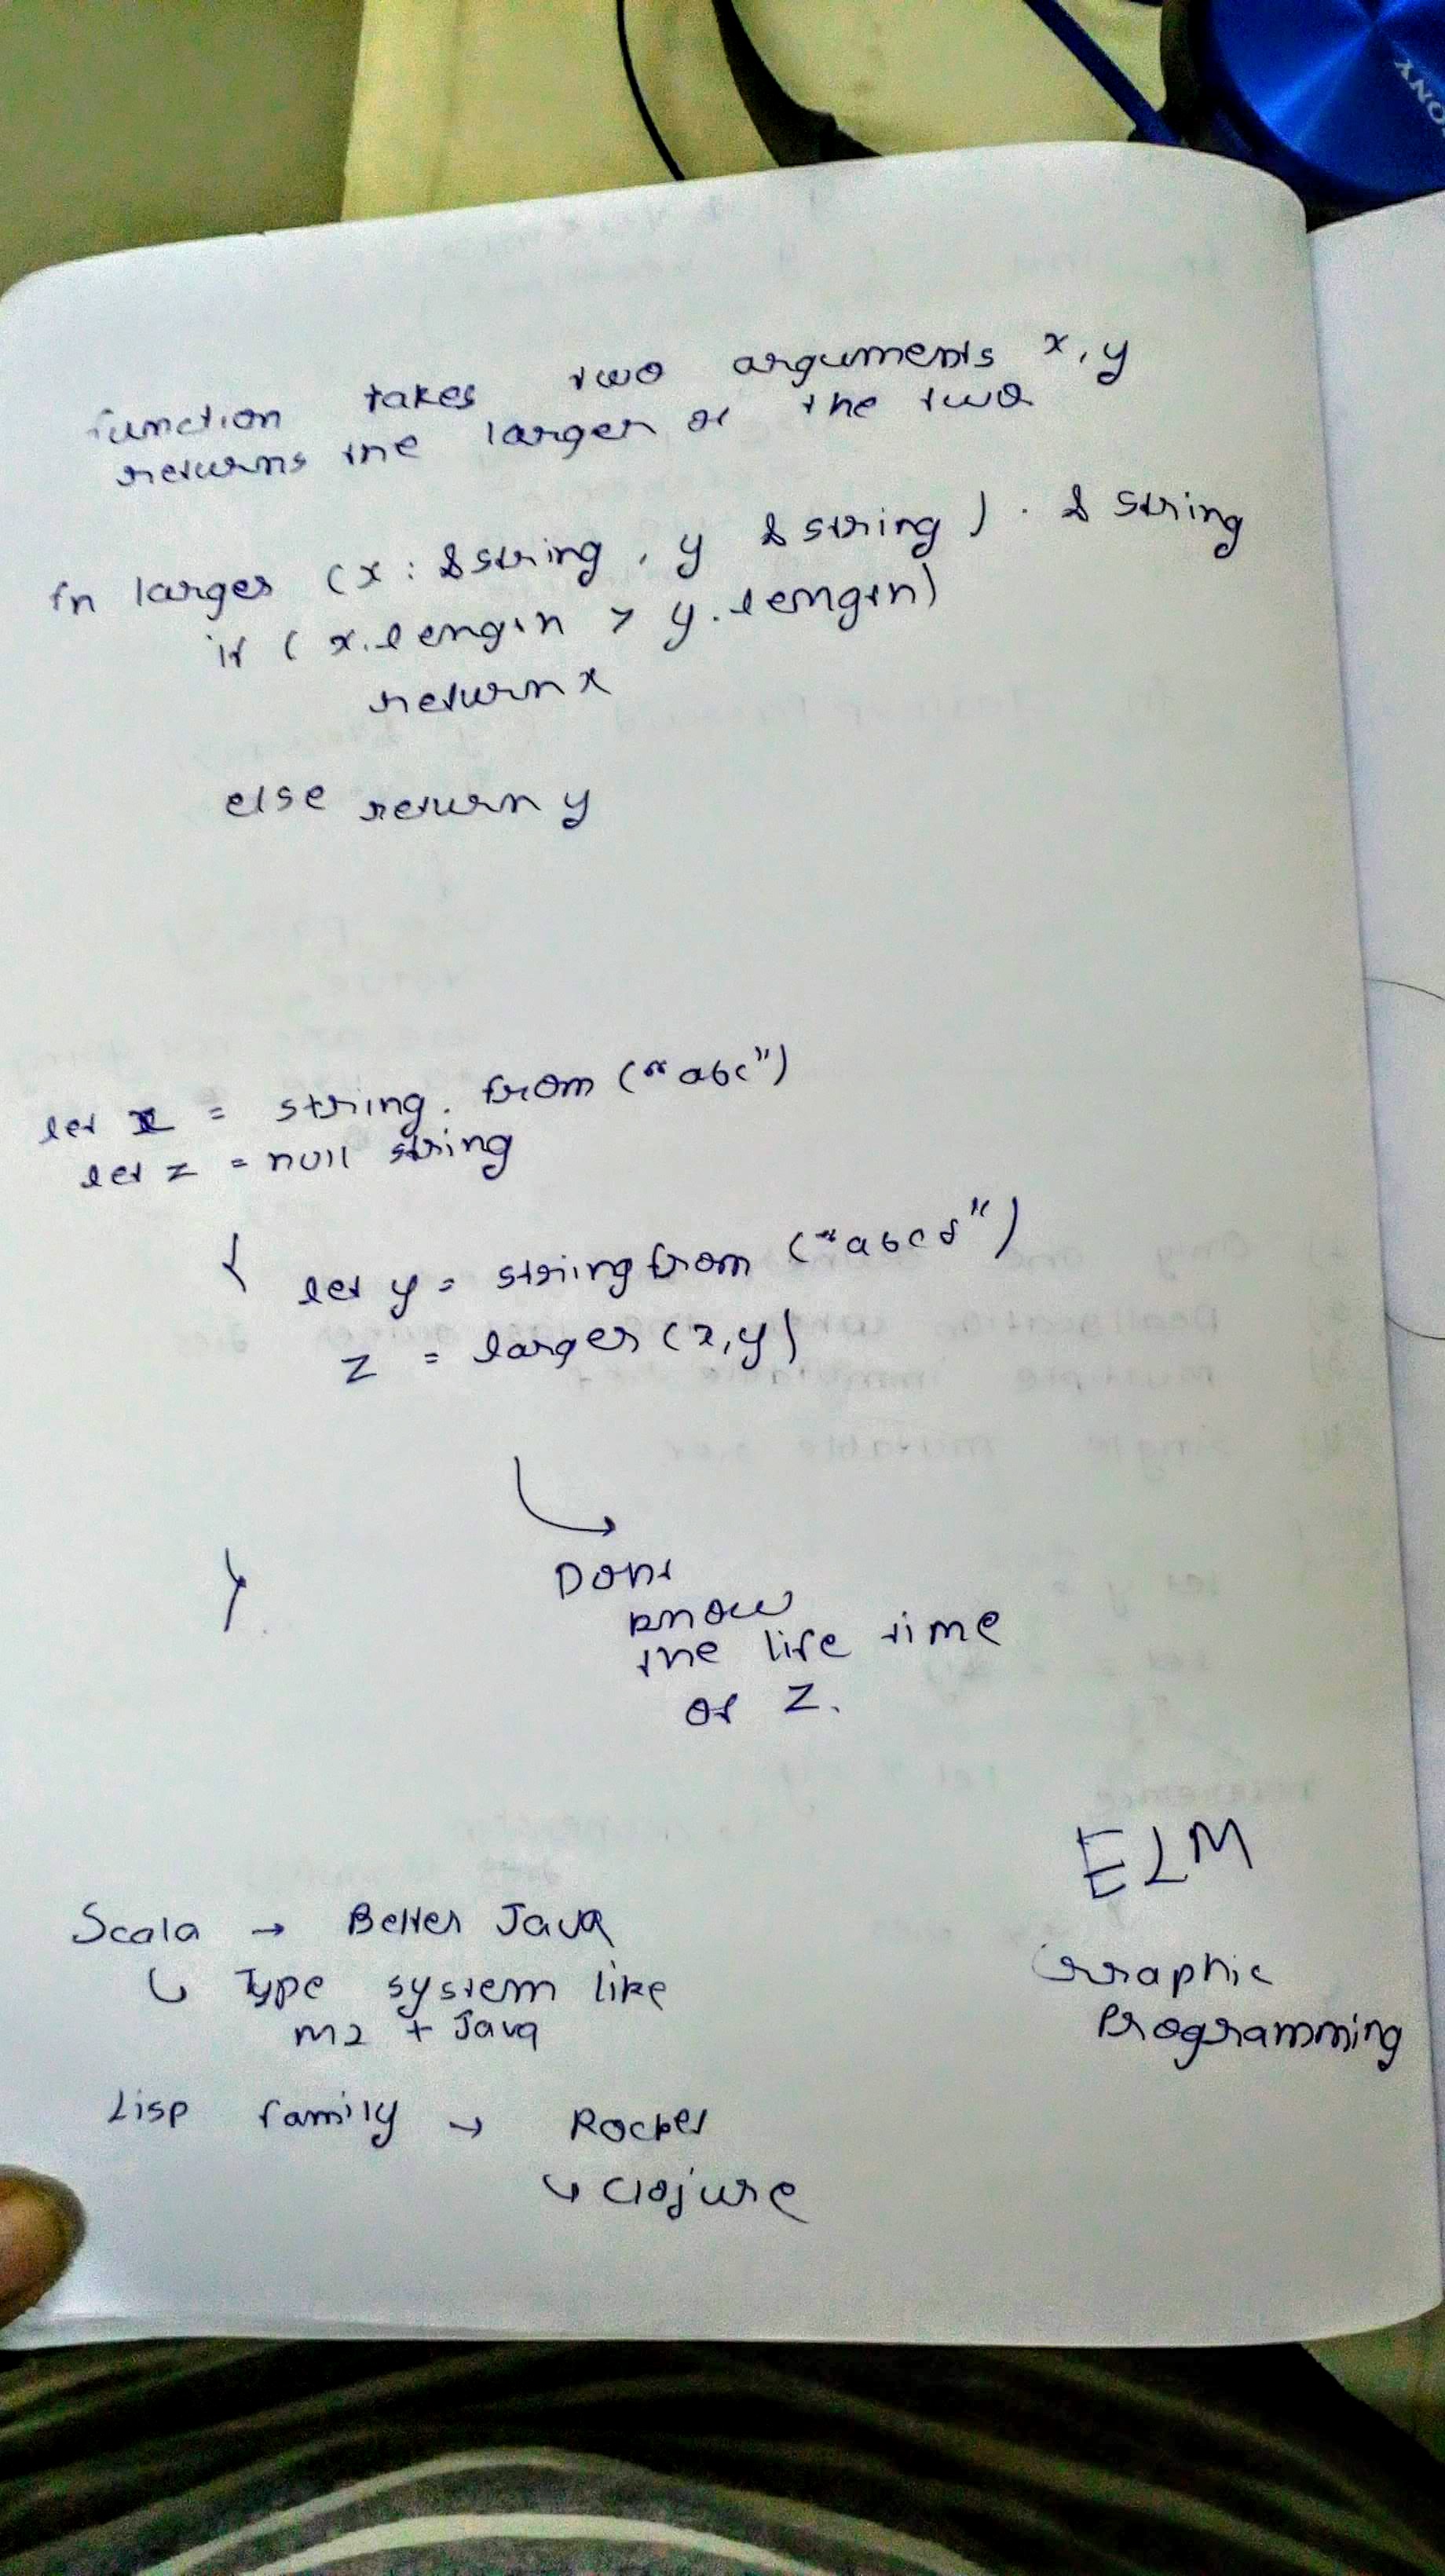 function takes two arguments x, y
returns the larger of the two
fn larger (x: &string, y &string) . & string
if (x.length > y.length)
return x
else return y
let x = string. from ("abc")
let z = null string
{
let y = string from ("abcd")
z = larger (x, y)
Dont
know
the life time
of z.
}
ELM
Graphic
Programming
Scala → Better Java
↳ Type system like
ML + Java
Lisp family → Rocket
↳ Clojure